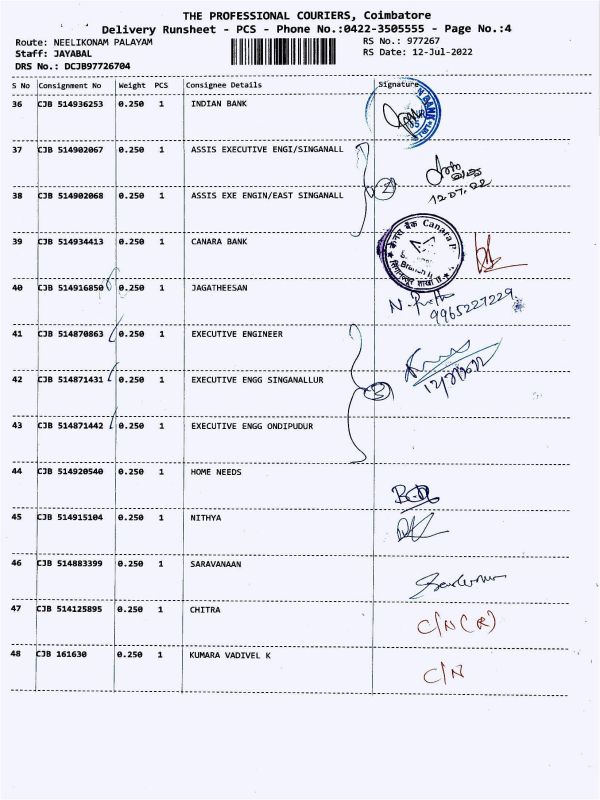 THE PROFESSIONAL COURIERS, Coimbatore
Delivery Runsheet - PCS - Phone No.:0422-3505555 - Page No.:4
Route: NEELIKONAM PALAYAM RS No.: 977267
Staff: JAYABAL RS Date: 12-Jul-2022
DRS No.: DCJB97726704
S No Consignment No Weight PCS Consignee Details Signature
36 CJB 514936253 0.250 1 INDIAN BANK
37 CJB 514902067 0.250 1 ASSIS EXECUTIVE ENGI/SINGANALL
2
12.07.22
38 CJB 514902068 0.250 1 ASSIS EXE ENGIN/EAST SINGANALL
केनरा बैंक Canara
39 CJB 514934413 0.250 1 CANARA BANK
40 CJB 514916850 0.250 1 JAGATHEESAN
9965227229
41 CJB 514870863 0.250 1 EXECUTIVE ENGINEER
42 CJB 514871431 0.250 1 EXECUTIVE ENGG SINGANALLUR
3
12/7/2022
43 CJB 514871442 0.250 1 EXECUTIVE ENGG ONDIPUDUR
44 CJB 514920540 0.250 1 HOME NEEDS
45 CJB 514915104 0.250 1 NITHYA
46 CJB 514883399 0.250 1 SARAVANAAN
47 CJB 514125895 0.250 1 CHITRA C/N (R)
48 CJB 161630 0.250 1 KUMARA VADIVEL K C/N